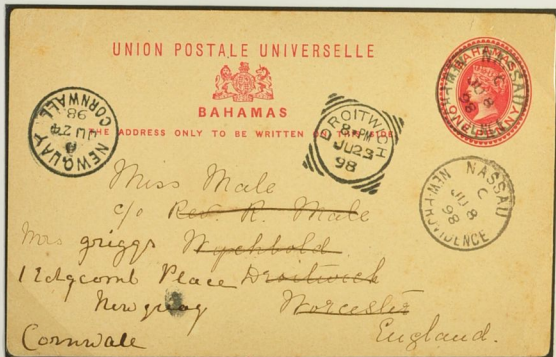 UNION POSTALE UNIVERSELLE
BAHAMAS
THE ADDRESS ONLY TO BE WRITTEN ON THIS SIDE.
NASSAU
C
JU 8
98
NEWQUAY CORNWALL
A
JU 24
98
DROITWICH
8-PM
JU 23
98
NASSAU
C
JU 8
98
NEW-PROVIDENCE
Miss Male
c/o Rev. R. Male
Mrs griggs Wychbold
1 Edgcomb Place Droitwich
Newquay Worcester
Cornwale England.